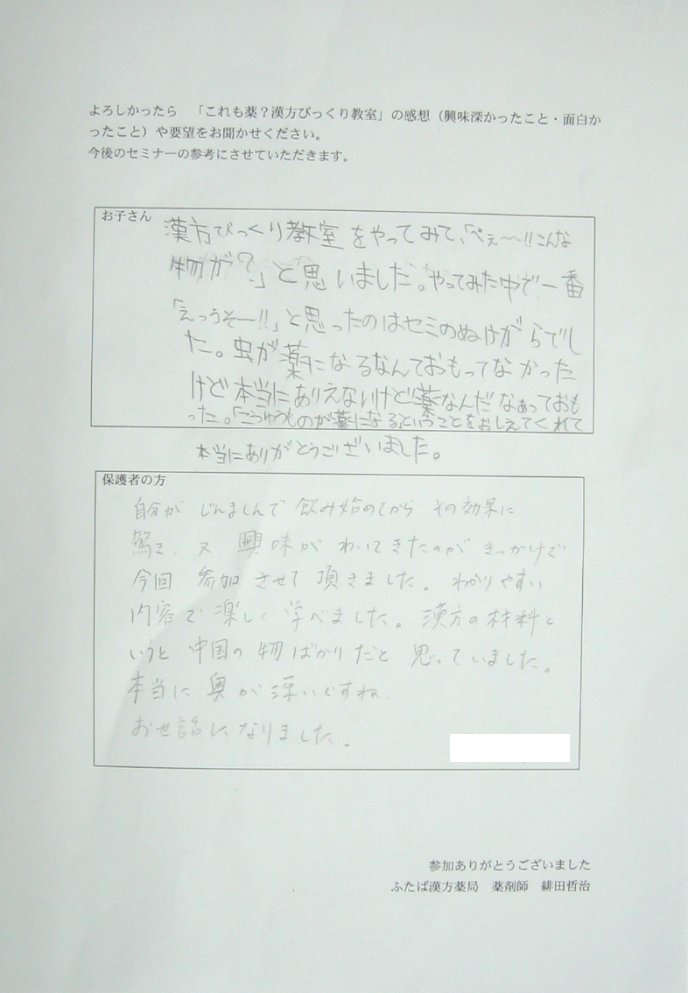 よろしかったら 「これも薬?漢方びっくり教室」の感想(興味深かったこと・面白か
ったこと)や要望をお聞かせください。
今後のセミナーの参考にさせていただきます。
お子さん
漢方びっくり教室をやってみて、「べぇ〜!!こんな
物が?」と思いました。やってみた中で一番
「えっうそー!!」と思ったのはセミのぬけがらでし
た。虫が薬になるなんておもってなかった
けど本当にありえないけど薬なんだなぁっておも
った。「こうゆうものが薬になる」ということをおしえてくれて
本当にありがとうございました。
保護者の方
自分が じんましんで 飲み始めてから その効果に
驚き、又 興味が わいてきたのが きっかけで
今回 参加 させて 頂きました。わかりやすい
内容で 楽しく 学べました。漢方の材料と
いうと 中国の物ばかりだと 思っていました。
本当に 奥が 深いですね
お世話になりました。
参加ありがとうございました
ふたば漢方薬局 薬剤師 緋田哲治